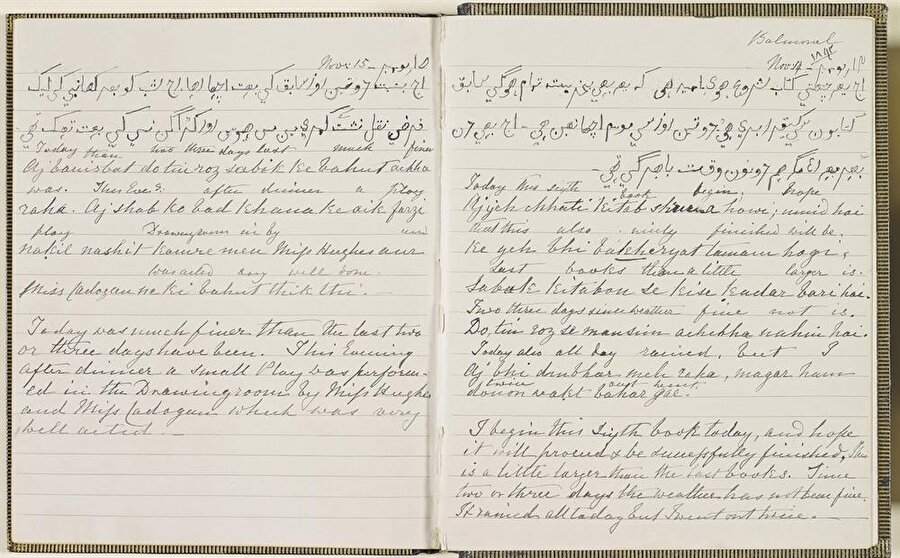 Balmoral
Nov: 14 - ۱۴ نومبر ۱۸۹۲
آج یہ چھٹی کتاب شروع ہوی امید ہی کہ یہ بھی بخیریت تمام ہوگی سابق
کتابون سی کسیقدر بڑی ہی دو تین روز سی موسم اچھا نھین ہی - آج بھی دن
بھر رہا مگر ہم دونون وقت باھر گئی تھی
Today this sixth book begin, hope
Aj yeh chhati kitab shuru howi; umid hai
that this also nicely finished will be.
ke yeh bhi bakheryat tamam hogi,
Last books than a little larger is.
Sabak kitabon se kise kadar bari hai.
Two three days since weather fine not is.
Do, tin roz se mausim achchha nahin hai.
Today also all day rained, but I
Aj bhi dinbhar meh raha, magar ham
twice out went.
donon wakt bahar gae.
I begin this sixth book today, and hope
it will proceed & be successfully finished, This
is a little larger than the last books. Since
two or three days the weather has not been fine.
It rained all today but I went out twice.
Nov: 15 - ۱۵ نومبر
آج بنسبت دو تین روز سابق کی بہت اچھا رہا آج شب کو بعد کھانی کی ایک
فرضی نقل نشست کمری مین مس ہیوس اور کڈاگن نی کی بہت ٹھیک تھی
Today than two three days last much finer
Aj banisbat do tin roz sabik ke bahut achha
was. This Eveg: after dinner a play
raha. Aj shab ko bad khana ke aik farzi
play Drawingroom in by and
nakil nashist kamre men Miss Hughes aur
was acted very well done.
Miss Cadogan ne ki bahut thik thi.
Today was much finer than the last two
or three days have been. This Evening
after dinner a small Play was perform-
ed in the Drawingroom by Miss Hughes
and Miss Cadogan which was very
well acted. —